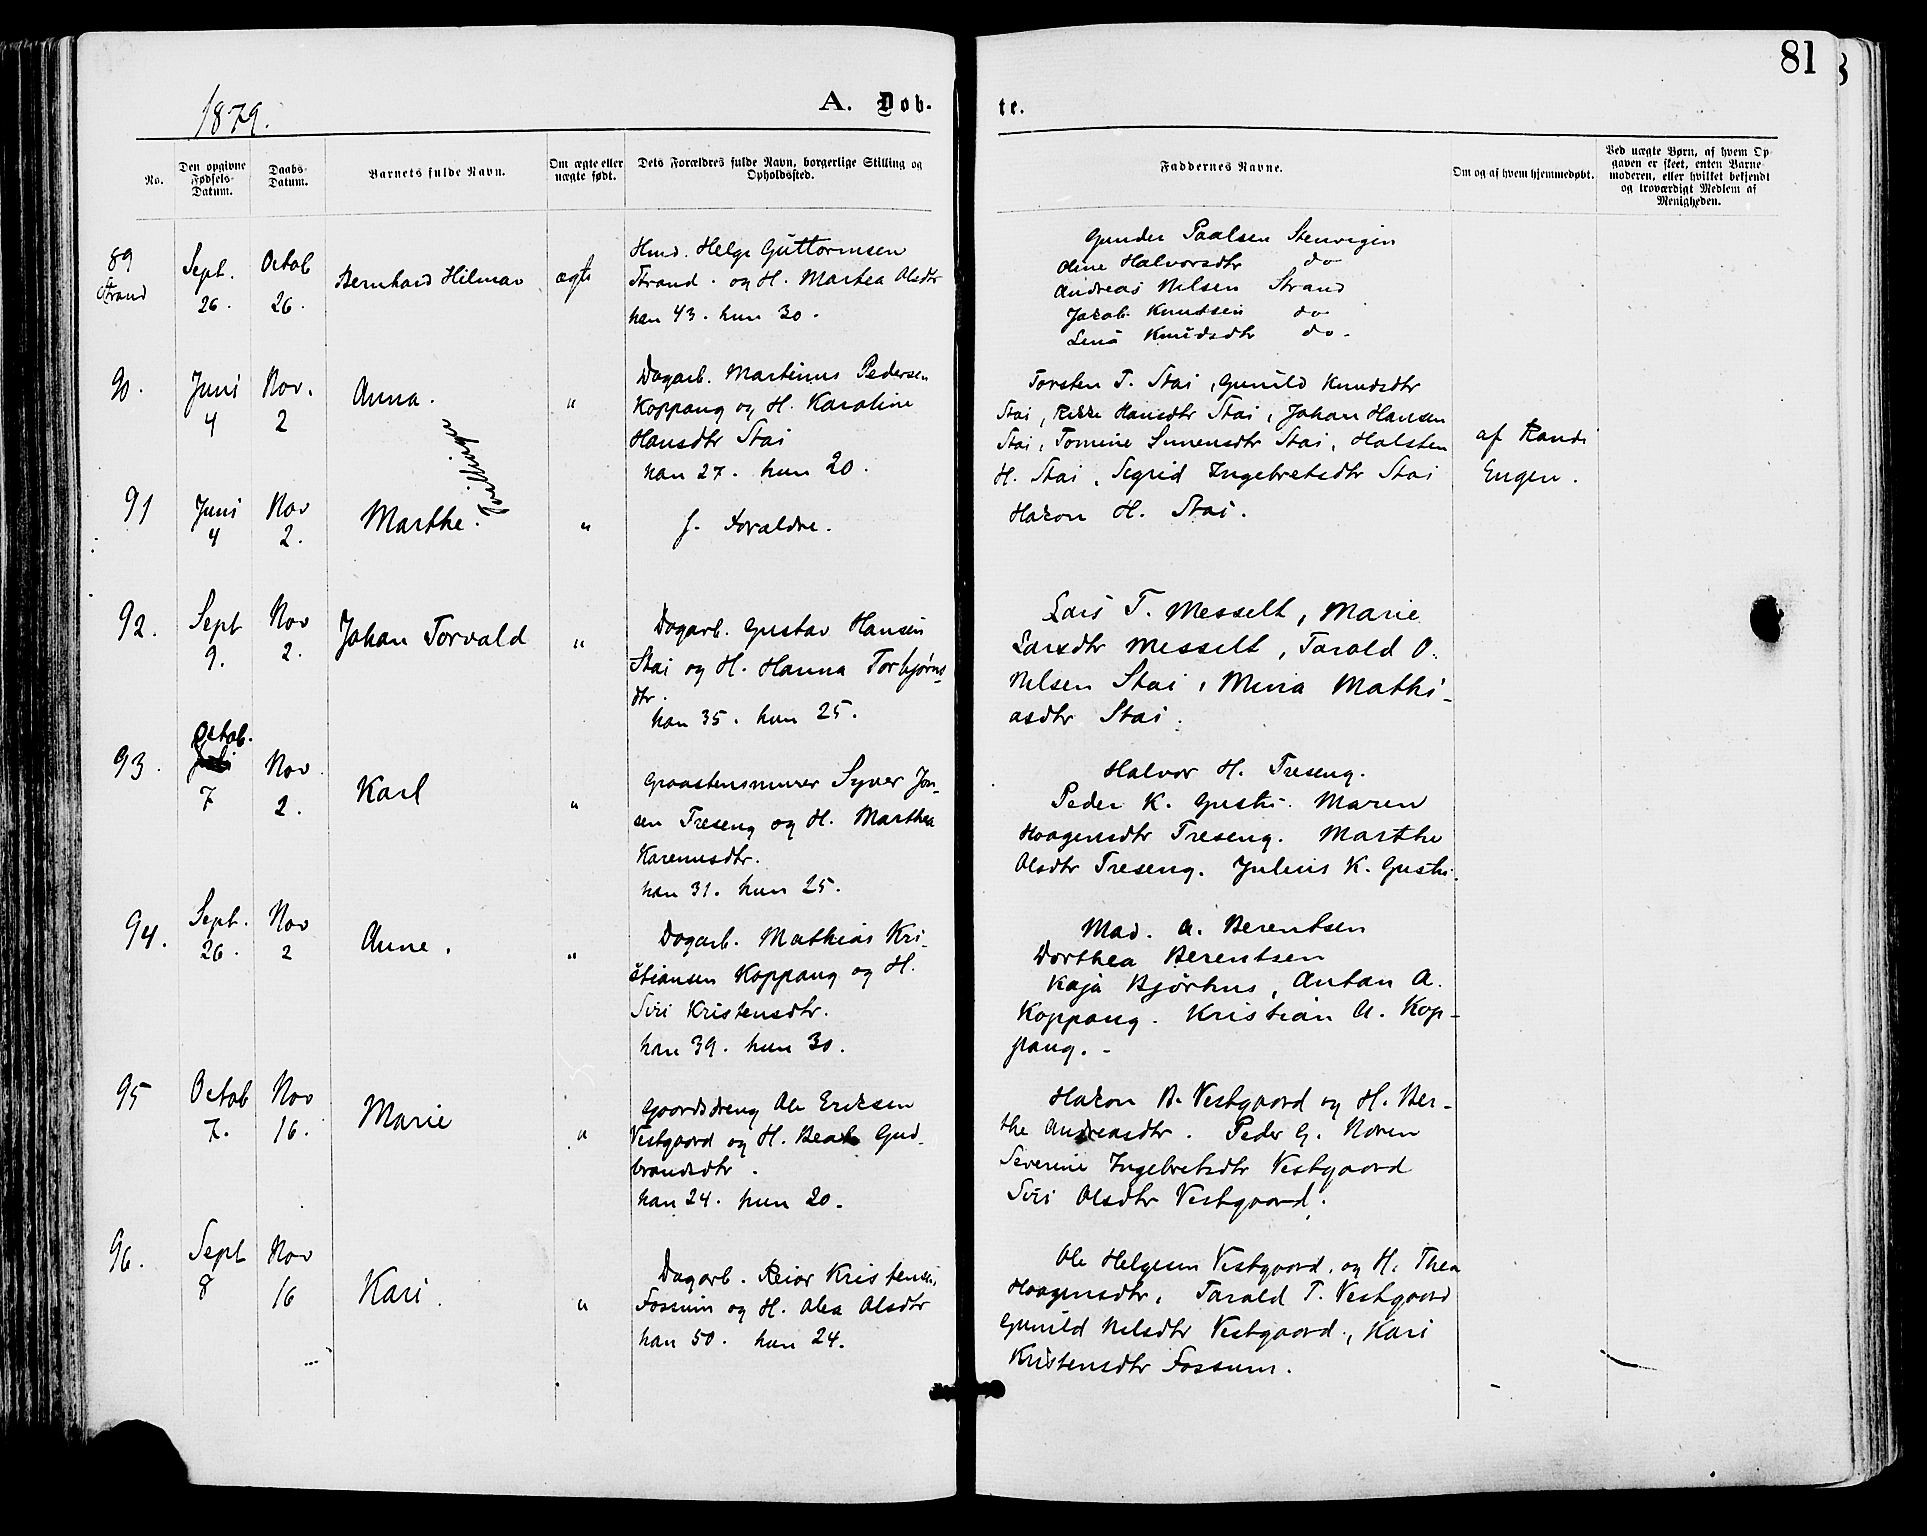 81
1879.
A. Døb-
te.
No.
Den opgivne Fødsels-Datum.
Daabs-Datum.
Barnets fulde Navn.
Om ægte eller uægte født.
Dets Forældres fulde Navn, borgerlige Stilling og Opholdssted.
Faddernes Navne.
Om og af hvem hjemmedøbt.
Ved uægte Børn, af hvem Op-
gaven er skeet, enten Barne-
moderen, eller hvilket bekjendt
og troværdigt Medlem af
Menigheden.
89
Strand
Sept.
26.
Octob
26.
Bernhard Hilmar
ægte
Hmd. Helge Guttormsen
Strand. og H. Marthea Olsdtr
han 43. hun 30.
Gunder Paalsen Stenvigen
Oline Halvorsdtr do
Andreas Nilsen Strand
Jakob Knudsen do
Lena Knudsdtr do.
90.
Juni
4
Nov.
2
Anna.
"
Dagarb. Martinus Pedersen
Koppang og H. Karoline
Hansdtr Stai
han 27. hun 20.
Torsten T. Stai, Gunild Knudsdtr
Stai, Rikke Hansdtr Stai, Johan Hansen
Stai, Tomine Simensdtr Stai, Halsten
H. Stai, Sigrid Ingebretsdtr Stai
Hakon H. Stai.
af Randi
Engen.
Tvillinger
91
Juni
4
Nov
2.
Marthe.
"
f. Forældre.
92.
Sept
9.
Nov
2.
Johan Torvald
"
Dagarb. Gustav Hansen
Stai og H. Hanna Torbjørns-
dtr.
han 35. hun 25.
Lars T. Messelt, Marie
Larsdtr Messelt, Tarald O.
Nilsen Stai, Mina Mathi-
asdtr Stai.
93.
Octob.
7
Nov
2.
Karl
"
Graastensmurer Syver Jon-
sen Treseng og H. Marthea
Karenusdtr.
han 31. hun 25.
Halvor H. Treseng.
Peder K. Gusti. Maren
Haagensdtr Treseng. Marthe
Olsdtr Treseng. Julius K. Gusti.
94.
Sept.
26.
Nov
2
Anne.
"
Dagarb. Mathias Kri-
stiansen Koppang og H.
Siri Kristensdtr.
han 39. hun 30.
Mad. A. Berentsen
Dorthea Berentsen
Kaja Bjørhus, Anton A.
Koppang. Kristian A. Kop-
pang. -
95
Octob
7.
Nov
16.
Marie
"
Gaardsdreng Ole Eriksen
Vestgaard og H. Beate Gud-
brandsdtr.
han 24. hun 20.
Hakon B. Vestgaard og H. Ber-
the Andreasdtr. Peder G. Noren
Severine Ingebretsdtr Vestgaard
Siri Olsdtr Vestgaard.
96.
Sept
8
Nov
16
Kari.
"
Dagarb. Reiar Kristensen
Fossum og H. Olea Olsdtr
han 50. hun 24.
Ole Helgesen Vestgaard, og H. Thea
Haagensdtr, Tarald T. Vestgaard
Gunild Nilsdtr Vestgaard, Kari
Kristensdtr Fossum.